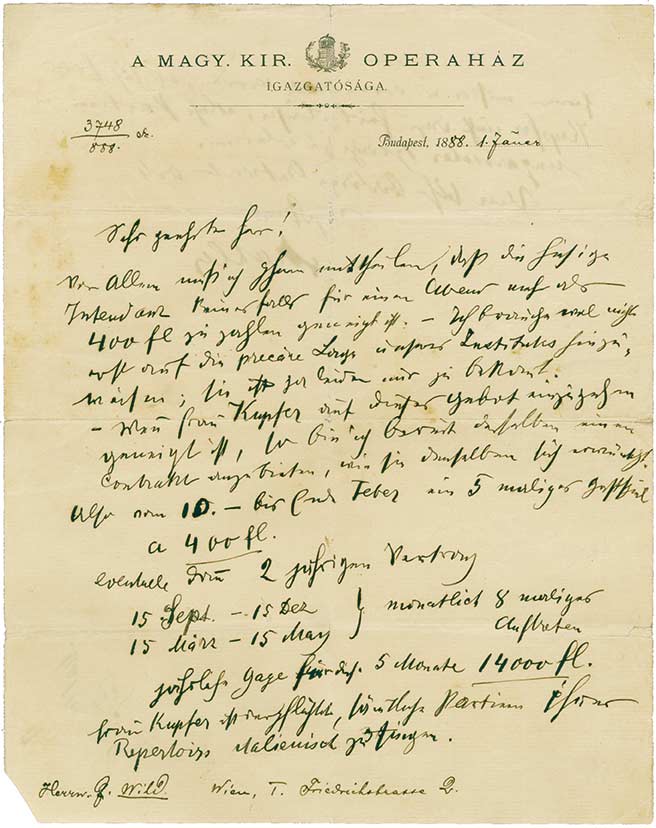 A MAGY. KIR. OPERAHÁZ
IGAZGATÓSÁGA.
3748
888.
Budapest, 1888. 1. Jäner
Sehr geehrter Herr!
Vor Allem muß ich Ihnen mittheilen, daß die hiesige
Intendanz keinesfalls für einen Abend mehr als
400 fl zu zahlen geneigt ist. – Ich brauche wol nicht
erst auf die precäre Lage unseres Instituts hinzu-
weisen; sie ist ja leider nur zu bekannt.
– Wenn Frau Kupfer auf dieses Gebot einzugehen
geneigt ist, so bin ich bereit derselben einen
Contrakt anzubieten, wie sie denselben sich erwünscht.
Also vom 10. – bis Ende Feber ein 5 maliges Gastspiel
a 400 fl.
eventuell dann 2 jährigen Vertrag
15 Sept. – 15 Dez } monatlich 8 maliges
15 März – 15 May Auftreten
jährliche Gage für die 5 Monate 14000 fl.
Frau Kupfer ist verpflichtet, sämtliche Partien ihres
Repertoirs italienisch zu singen.
Herrn Wild. Wien, I. Friedrichstrasse 2.